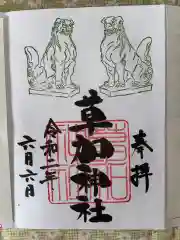 奉拝
草加神社
令和二年
六月六日